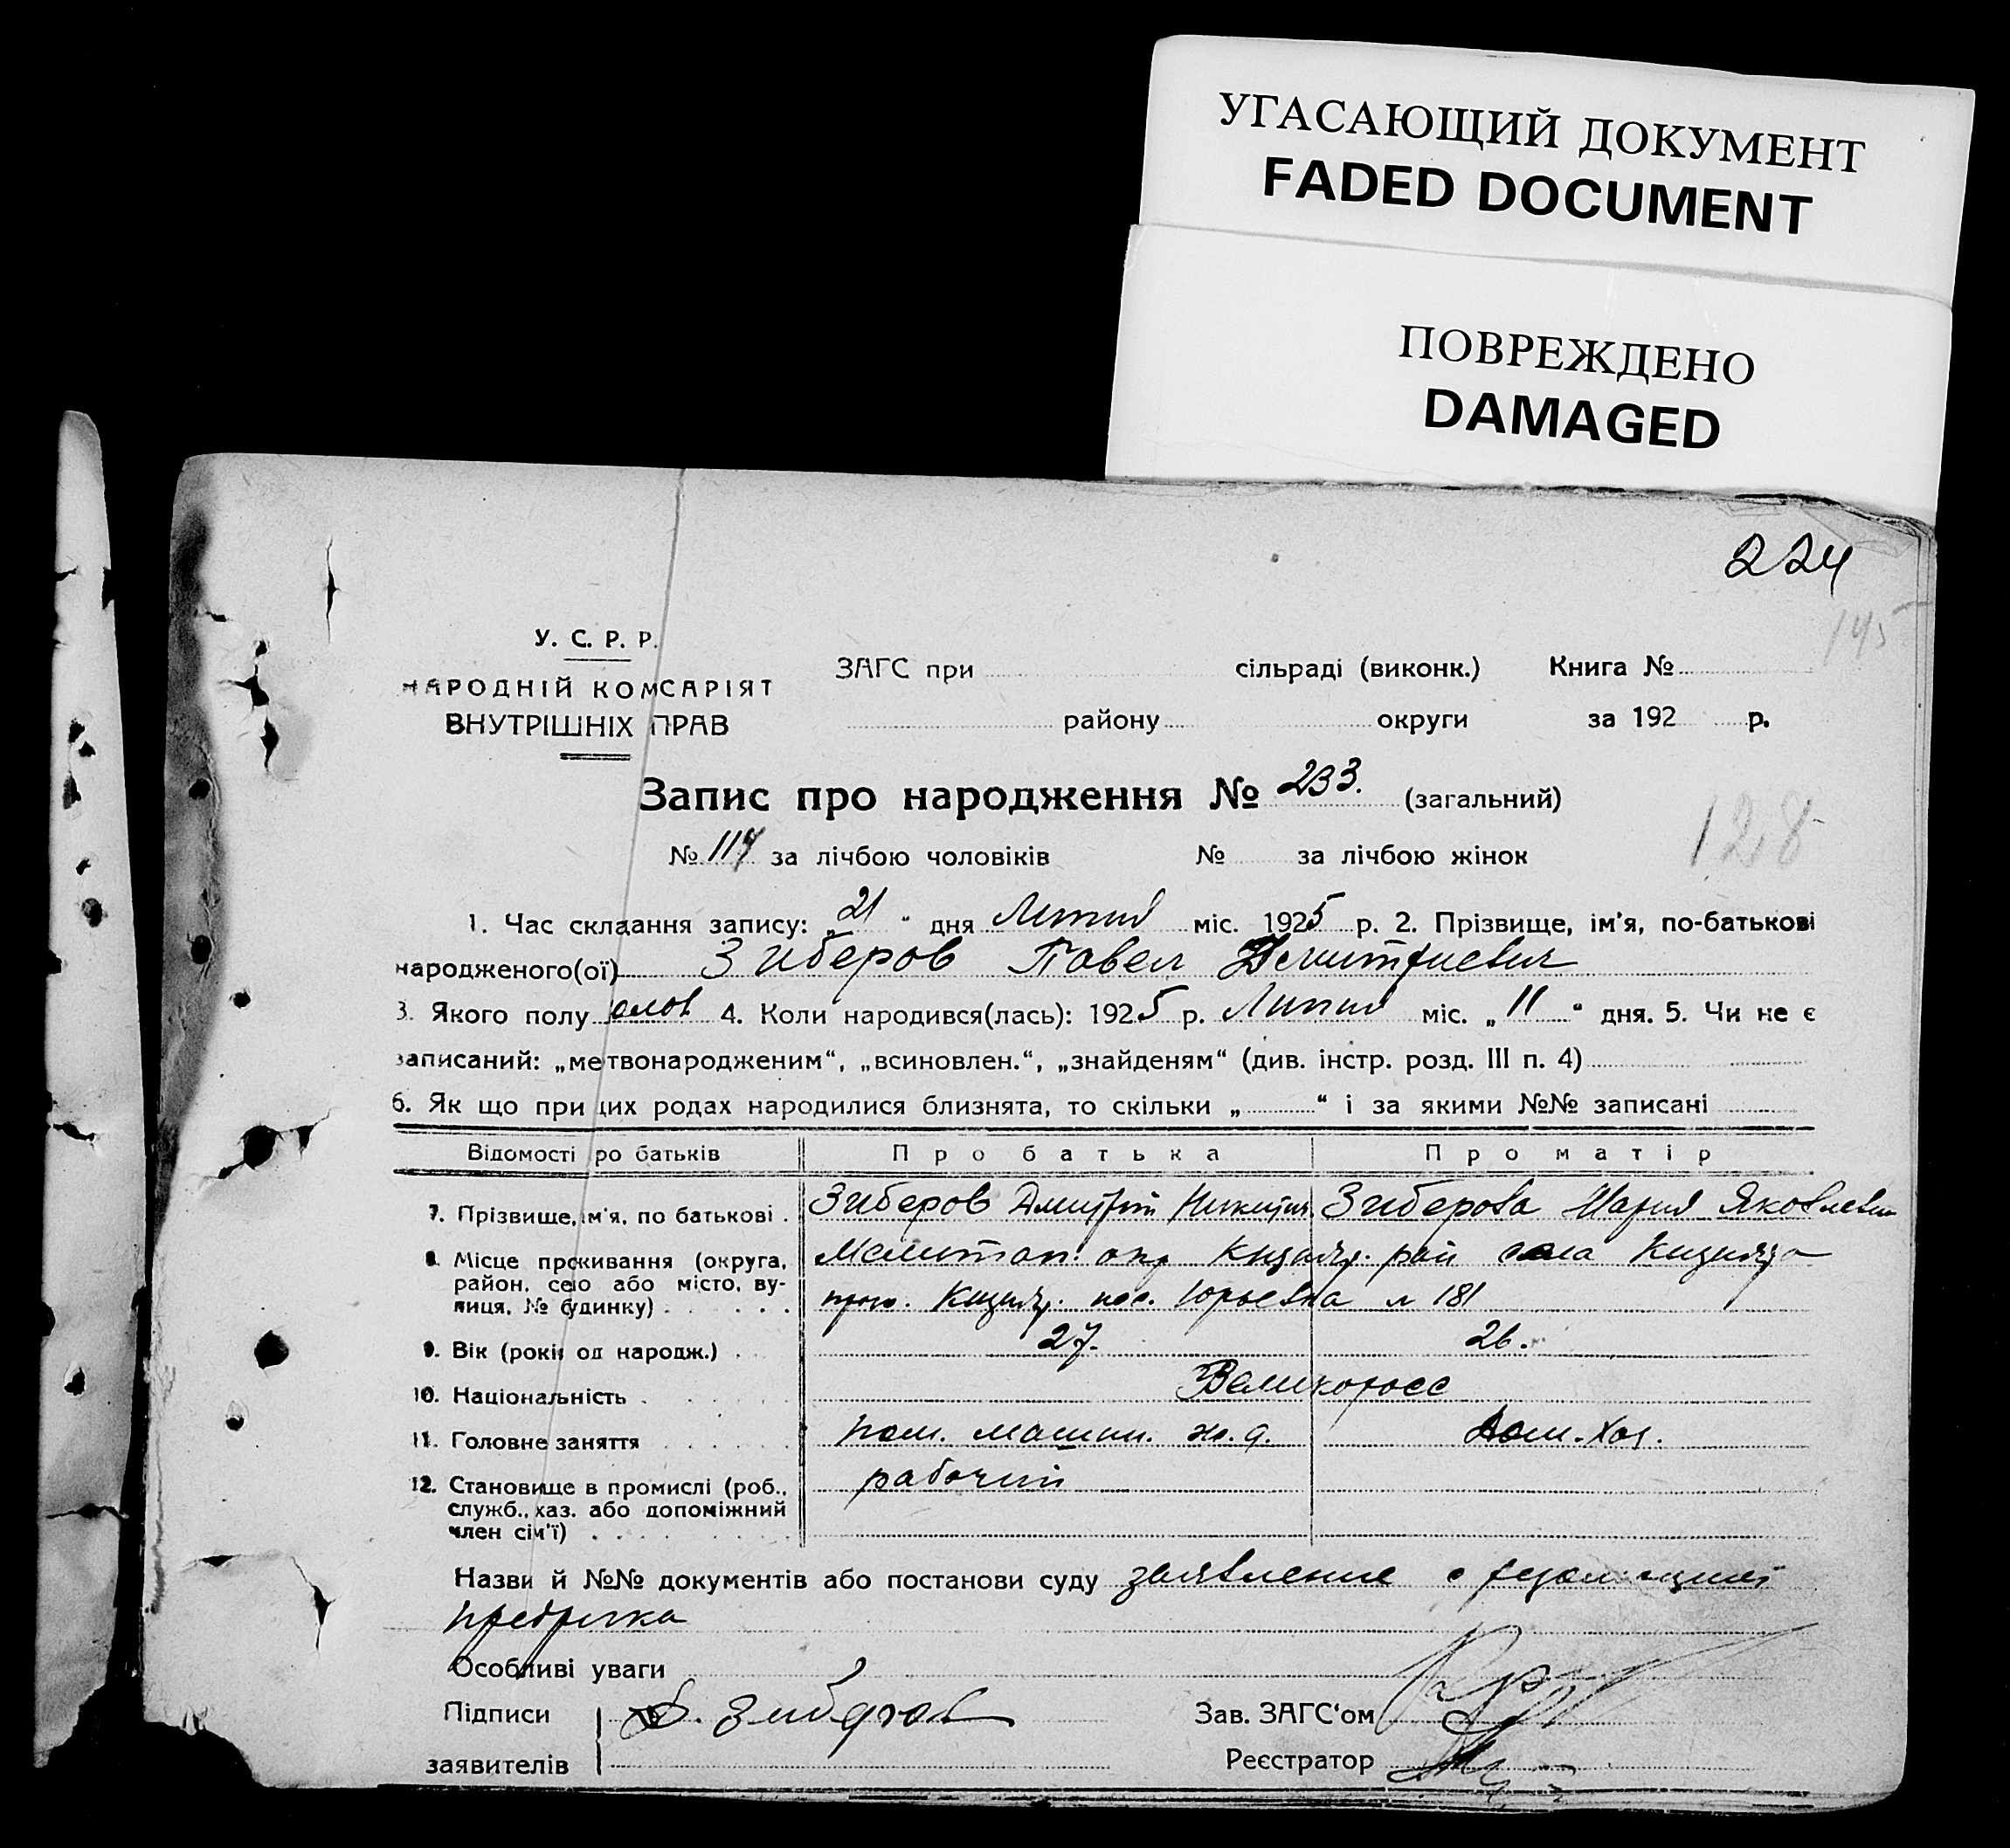 УГАСАЮЩИЙ ДОКУМЕНТ
FADED DOCUMENT
ПОВРЕЖДЕНО
DAMAGED
224
145
У. С. Р. Р.
НАРОДНІЙ КОМСАРІЯТ
ВНУТРІШНІХ ПРАВ
ЗАГС при сільраді (виконк.) Книга №
району округи за 192 р.
Запис про народження № 233. (загальний)
128
№ 117 за лічбою чоловіків № за лічбою жінок
1. Час складання запису: „21“ дня Липня міс. 1925 р. 2. Прізвище, ім'я, по-батькові
народженого(ої) Зиберов Павел Дмитриевич
3. Якого полу 4. Коли народився(лась): 1925 р. Липня міс. „11“ дня. 5. Чи не є
записаний: „метвонародженим“, „всиновлен.“, „знайденям“ (див. інстр. розд. III п. 4)
6. Як що при цих родах народилися близнята, то скільки „ “ і за якими №№ записані
Відомості про батьків Про батька Про матір
7. Прізвище, ім'я, по батькові . Зиберов Дмитрий Никитич. Зиберова Мария Яковлевн
8. Місце проживання (округа, район, село або місто, вулиця, № будинку) . Мелитоп. окр Кизияр. рай села Кизияра
Кизияр. пос. Юрьевка № 181
9. Вік (роки од народж.) . 27. 26.
10. Національність . Великоросс
11. Головне заняття пом. машин. ж. д. Дом. хоз.
12. Становище в промислі (роб., рабочий
служб., хаз. або допоміжний
член сім'ї)
Назви й №№ документів або постанови суду заявление с резолюцией
Особливі уваги
Підписи Д. Зиберов Зав. ЗАГС'ом
заявителів Реєстратор